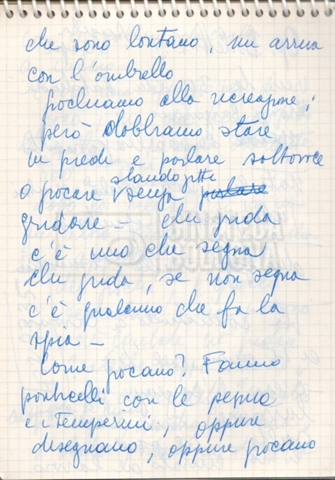 che sono lontano, mi arriva
con l'ombrello
pochiamo alla ricreazione;
però dobbiamo stare
in piedi e parlare sottovoce
stando zitti
o giocare senza parlare
gridare – chi grida
c'è uno che segna
chi grida, se non segna
c'è qualcuno che fa la
spia –
Come giocano? Fanno
ponticelli con le penne
e i temperini, oppure
disegnano, oppure giocano